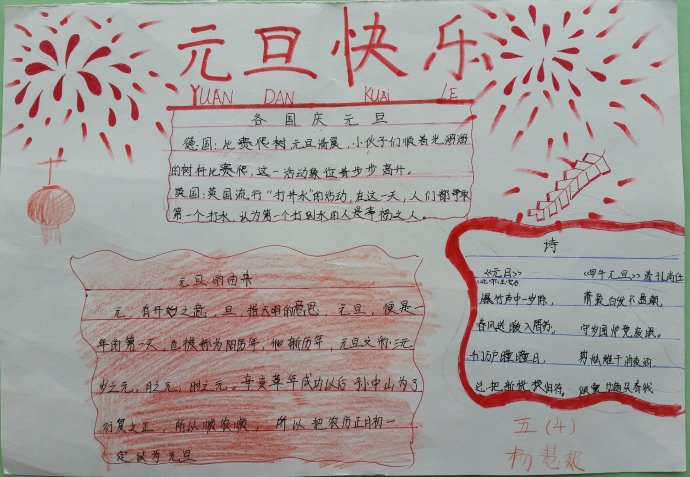 元旦快乐
YUAN DAN KUAI LE
各国庆元旦
德国:比赛爬树元旦活展,小伙子们顺着光溜溜
的树杆比赛爬,这一活动象位着步步高升。
英国:英国流行"打井水"的活动,在这一天,人们都争取
第一个打水,认为第一个打到水的人是幸福之人。
元旦的由来
元,有开始之意,旦,指天明的意思,元旦,便是一
年的第一天,也被称为阳历年,他新历年,元旦又称:三元
岁之元,月之元,时之元。辛亥革年成功以后孙中山为了
行夏之正,所以顺农顺,所以把农历正月初一
定以为元旦
诗
《元日》
北宋王安石
爆竹声中一岁除,
春风送暖入屠苏,
千门万户曈曈日,
总把新桃换旧符。
《四年元旦》清孔尚任
萧萧白发不盈颠,
守岁围炉竟废眠。
剪烛催干消夜酒,
五(4)
杨慧妮